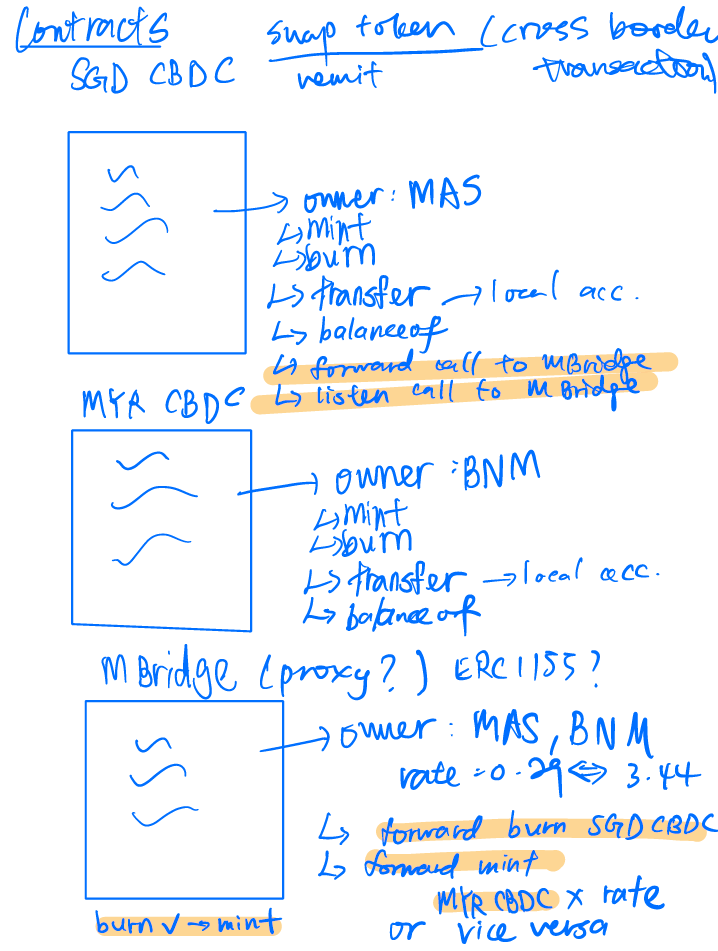 Contracts swap token (cross border
SGD CBDC remit transaction)
→ owner: MAS
↳ mint
↳ burn
↳ transfer → local acc.
↳ balanceof
↳ forward call to MBridge
↳ listen call to MBridge
MYR CBDC
→ owner: BNM
↳ mint
↳ burn
↳ transfer → local acc.
↳ balanceof
MBridge (proxy?) ERC1155?
→ owner: MAS, BNM
rate = 0.29 ⇔ 3.44
↳ forward burn SGD CBDC
↳ forward mint
MYR CBDC x rate
burn ✓ → mint or vice versa